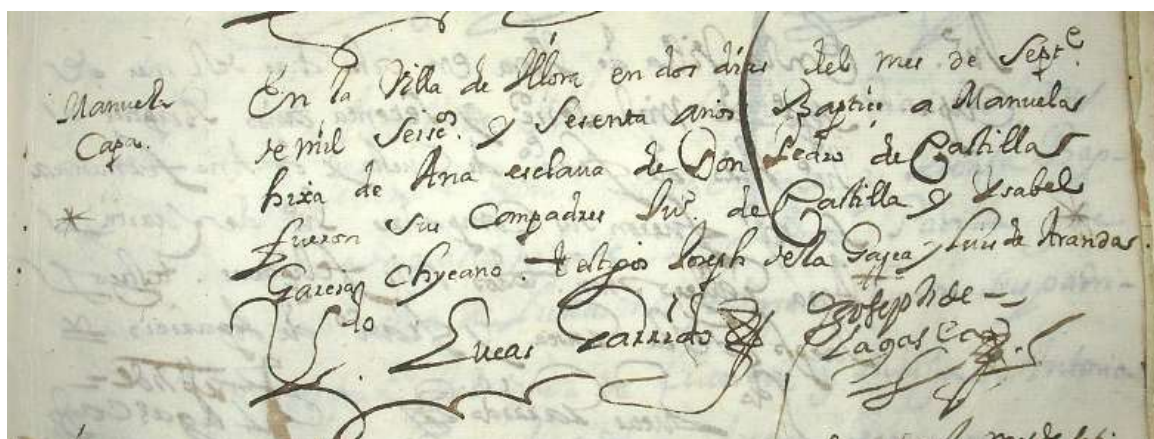 Manuela
Capa.
En la Villa de Yllora en dos dias del mes de Septe.
de mil seisos. y sesenta anos Baptice a Manuela
hixa de Ana esclava de Don Pedro de Castilla
fueron sus Compadres Luis. de Castilla y Ysabel
Garcia Chycano. testigos Joseph de la Gasca y Luis de Aranda.
Lucas Garrido
Joseph de
Lagasca